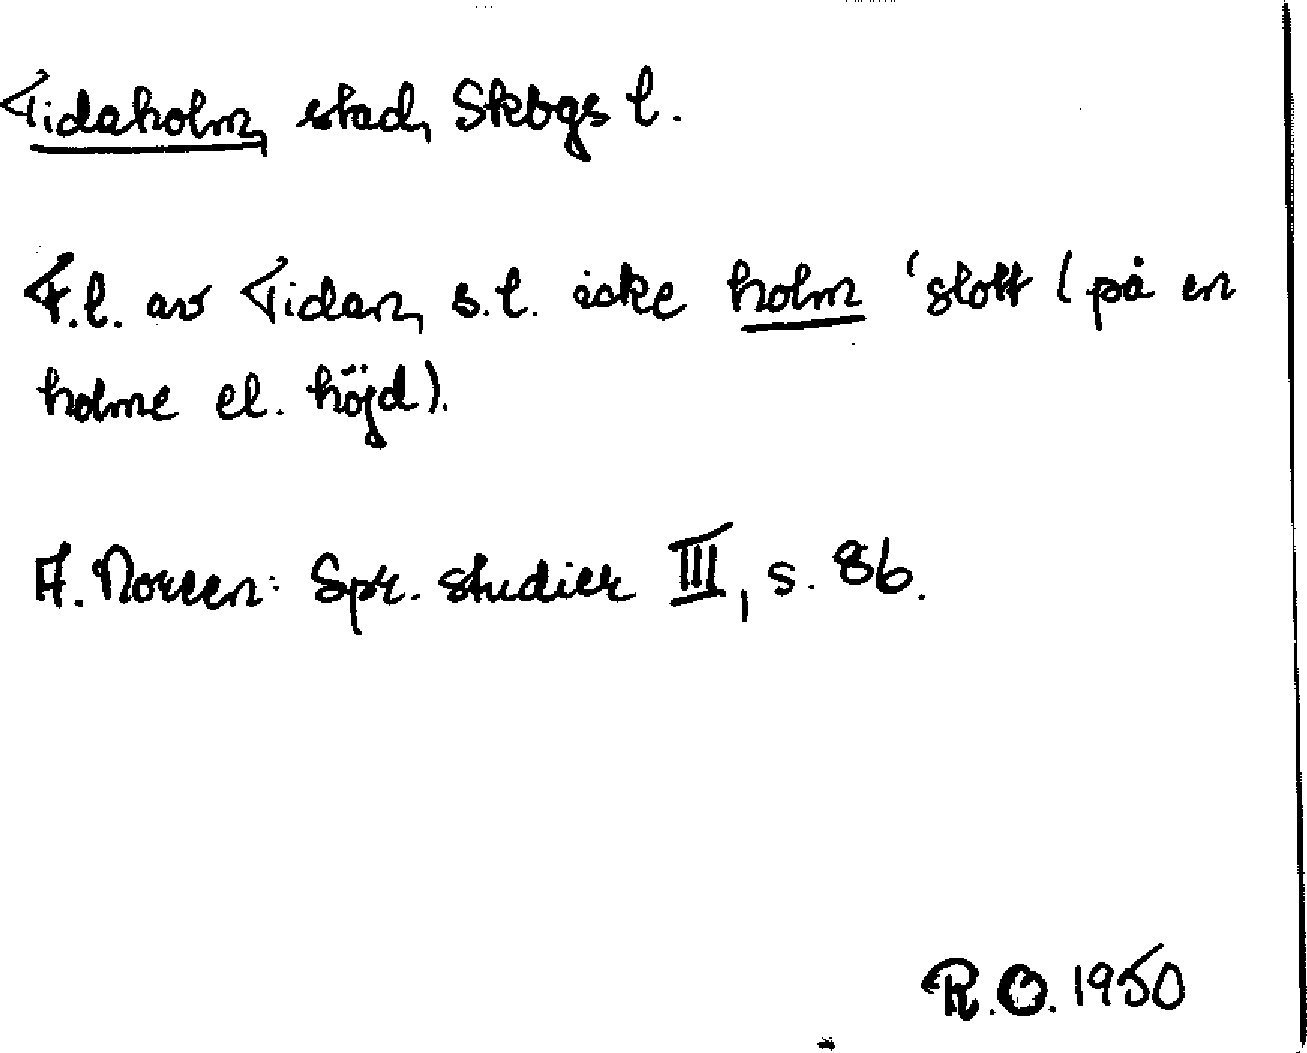 Tidaholm, stad, Skbgs l.
F.l. av Tidan, s.l. äske holm 'slott (på en
holme el. höjd).
A. Noreen: Spr. studier III, s. 86.
R.O. 1950